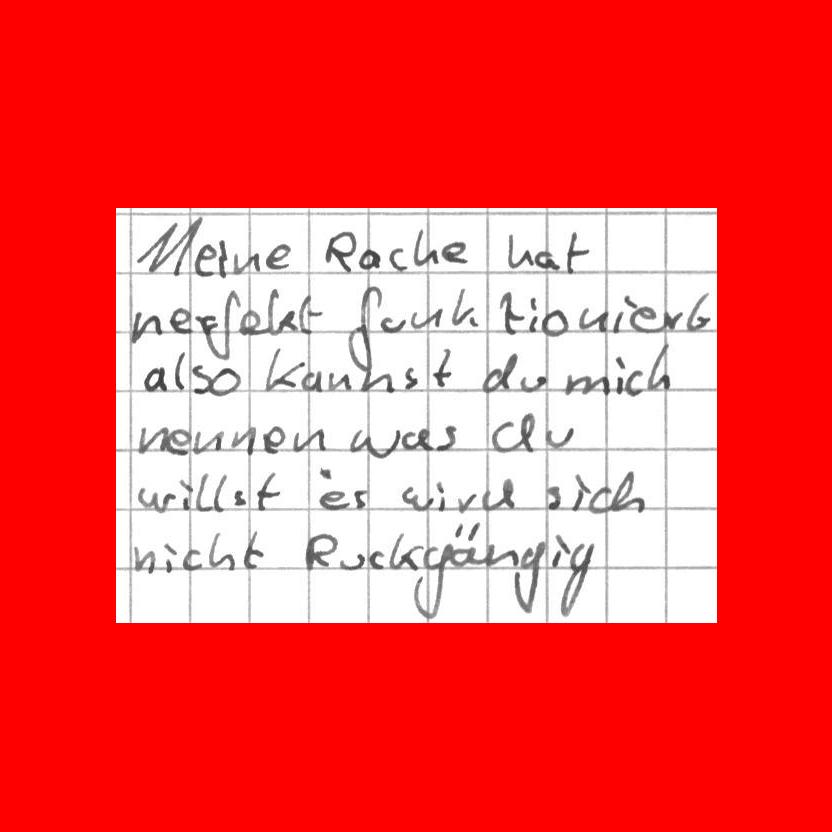 Meine Rache hat
perfekt funktioniert
also kannst du mich
nennen was du
willst es wird sich
nicht Ruckgängig